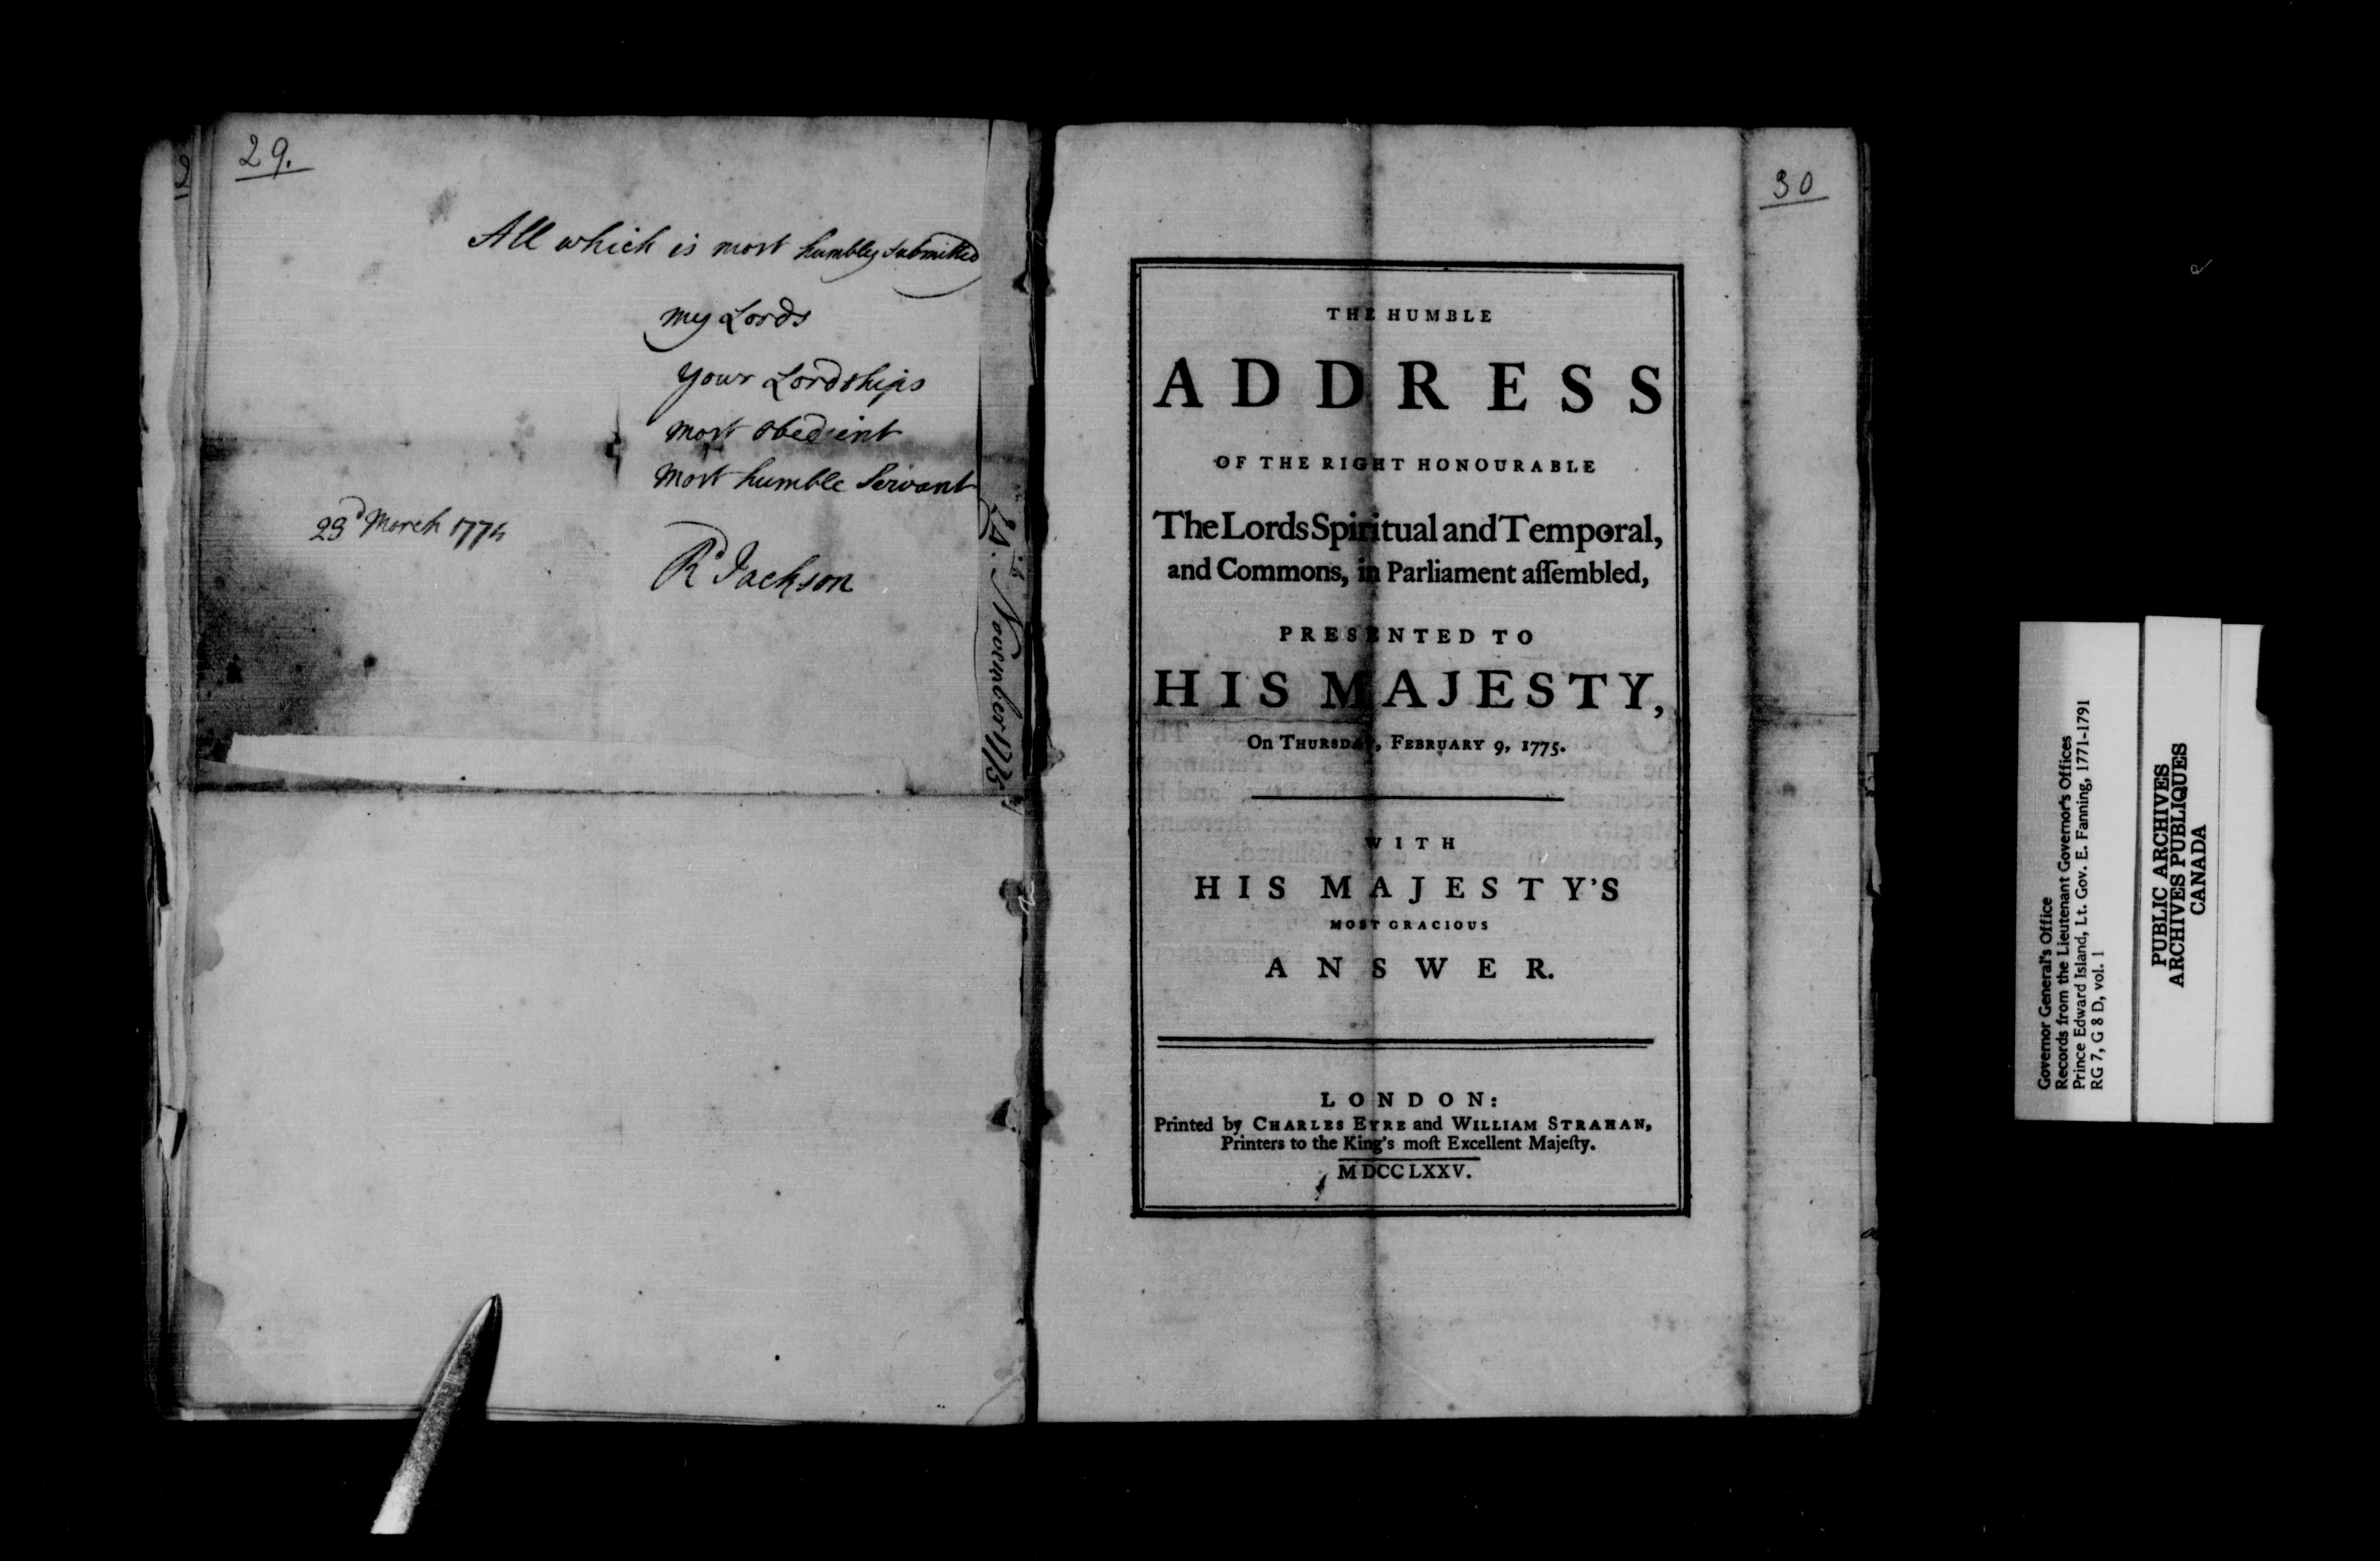 29.
All which is most humbly submitted
my Lords
your Lordships
most obedient
most humble Servant
23d March 1774
Rd Jackson
November 1775
30
THE HUMBLE
ADDRESS
OF THE RIGHT HONOURABLE
The Lords Spiritual and Temporal,
and Commons, in Parliament aſſembled,
PRESENTED TO
HIS MAJESTY,
On THURSDAY, FEBRUARY 9, 1775.
WITH
HIS MAJESTY'S
MOST GRACIOUS
ANSWER.
LONDON:
Printed by CHARLES EYRE and WILLIAM STRAHAN,
Printers to the King's moſt Excellent Majeſty.
MDCCLXXV.
Governor General's Office
Records from the Lieutenant Governor's Offices
Prince Edward Island, Lt. Gov. E. Fanning, 1771-1791
RG 7, G 8 D, vol. 1
PUBLIC ARCHIVES
ARCHIVES PUBLIQUES
CANADA